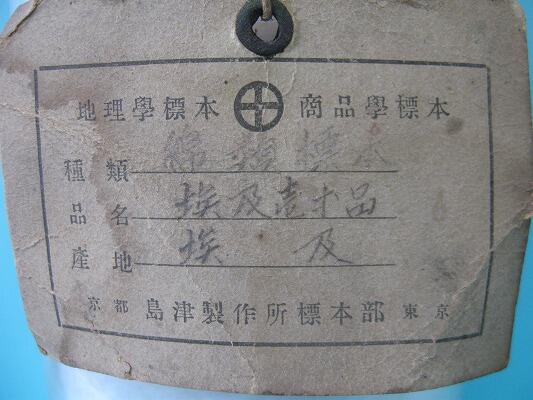 地理學標本 商品學標本
種類 綿類標本
品名 埃及壹本品
産地 埃及
京都 島津製作所標本部 東京